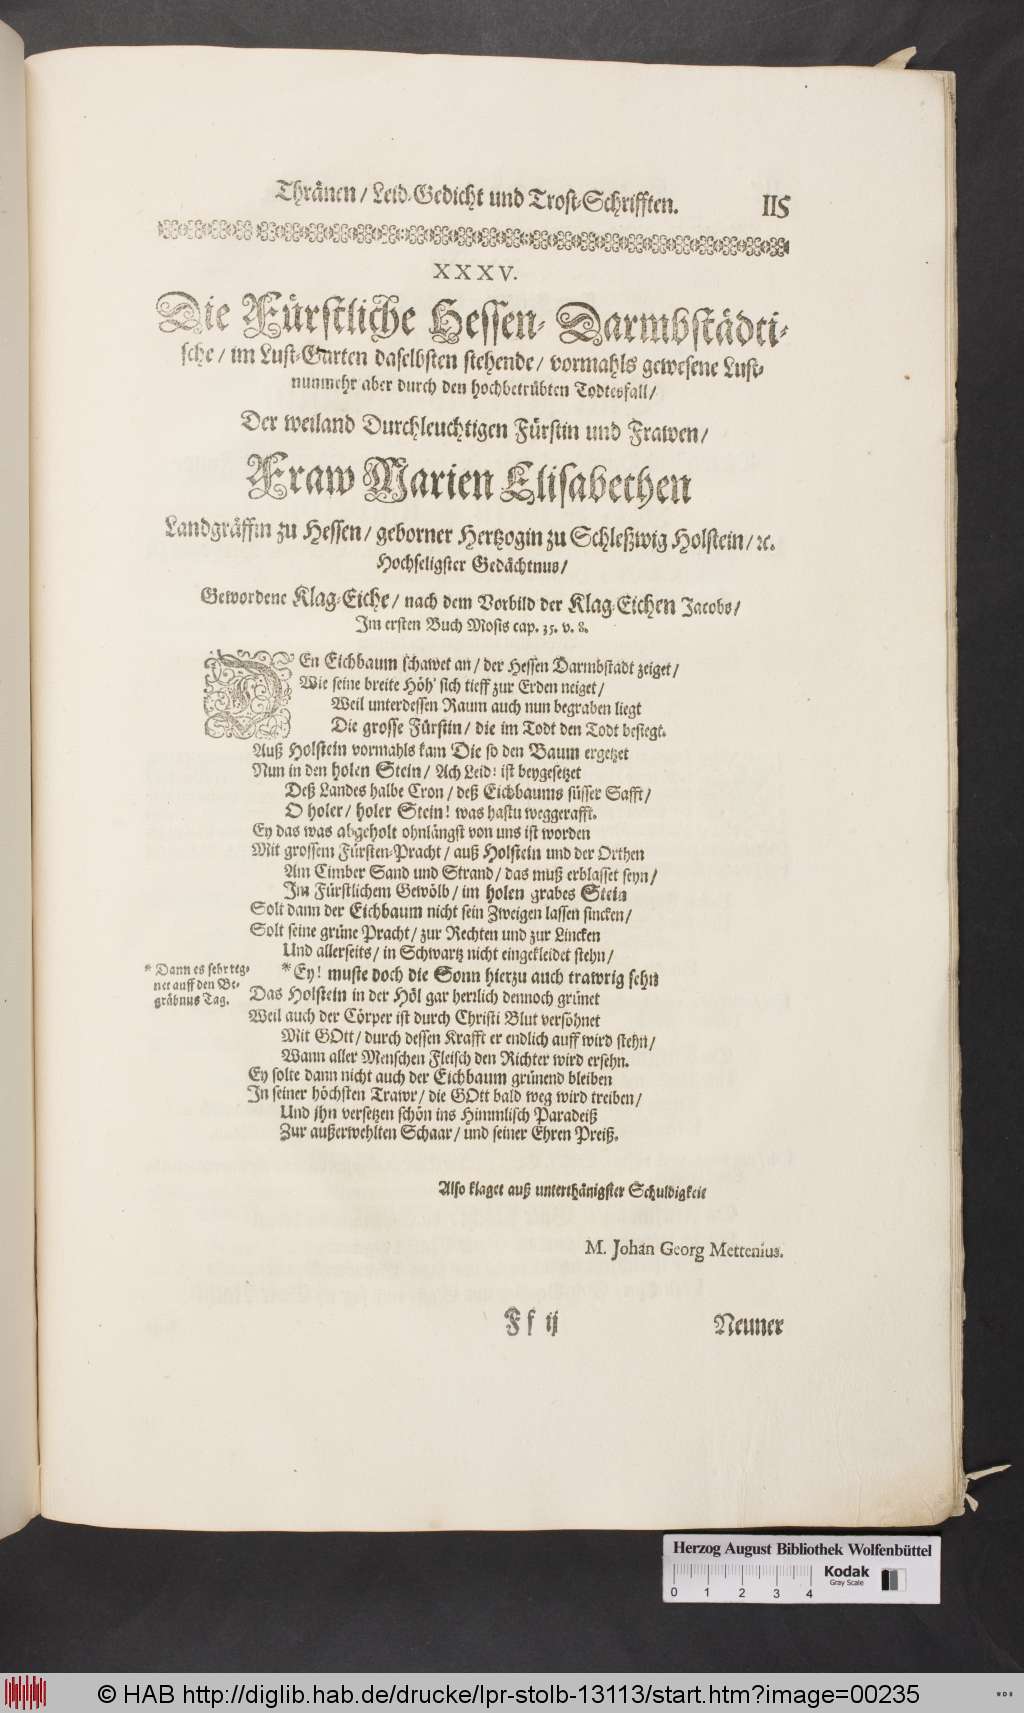 Thränen / Leid-Gedicht und Trost-Schrifften. 115
XXXV.
Die Fürstliche Hessen-Darmbstädti-
sche / im Lust-Garten daselbsten stehende / vormahls gewesene Lust-
nunmehr aber durch den hochbetrübten Todtesfall /
Der weiland Durchleuchtigen Fürstin und Frawen /
Fraw Marien Elisabethen
Landgräffin zu Hessen / geborner Hertzogin zu Schleßwig Holstein / ꝛc.
Hochseligster Gedächtnus /
Gewordene Klag-Eiche / nach dem Vorbild der Klag-Eichen Jacobs /
Im ersten Buch Mosis cap. 35. v. 8.
DEn Eichbaum schawet an / der Hessen Darmbstadt zeiget /
Wie seine breite Höh' sich tieff zur Erden neiget /
Weil unterdessen Raum auch nun begraben liegt
Die grosse Fürstin / die im Todt den Todt besiegt.
Auß Holstein vormahls kam Die so den Baum ergetzet
Nun in den holen Stein / Ach Leid! ist beygesetzet
Deß Landes halbe Cron / deß Eichbaums süsser Safft /
O holer / holer Stein! was hastu weggerafft.
Ey das was abgeholt ohnlängst von uns ist worden
Mit grossem Fürsten-Pracht / auß Holstein und der Orthen
Am Cimber Sand und Strand / das muß erblasset seyn /
Im Fürstlichem Gewölb / im holen grabes Stein
Solt dann der Eichbaum nicht sein Zweigen lassen sincken /
Solt seine grüne Pracht / zur Rechten und zur Lincken
Und allerseits / in Schwartz nicht eingekleidet stehn /
* Ey! muste doch die Sonn hierzu auch trawrig sehn
* Dann es sehr reg-
net auff den Be-
gräbnus Tag.
Das Holstein in der Höl gar herrlich dennoch grünet
Weil auch der Cörper ist durch Christi Blut versöhnet
Mit GOtt / durch dessen Krafft er endlich auff wird stehn /
Wann aller Menschen Fleisch den Richter wird ersehn.
Ey solte dann nicht auch der Eichbaum grünend bleiben
In seiner höchsten Trawr / die GOtt bald weg wird treiben /
Und ihn versetzen schön ins Himmlisch Paradeiß
Zur außerwehlten Schaar / und seiner Ehren Preiß.
Also klaget auß unterthänigster Schuldigkeit
M. Johan Georg Mettenius.
Ff ij Neuner
Herzog August Bibliothek Wolfenbüttel
Kodak
Gray Scale
0 1 2 3 4
© HAB http://diglib.hab.de/drucke/lpr-stolb-13113/start.htm?image=00235